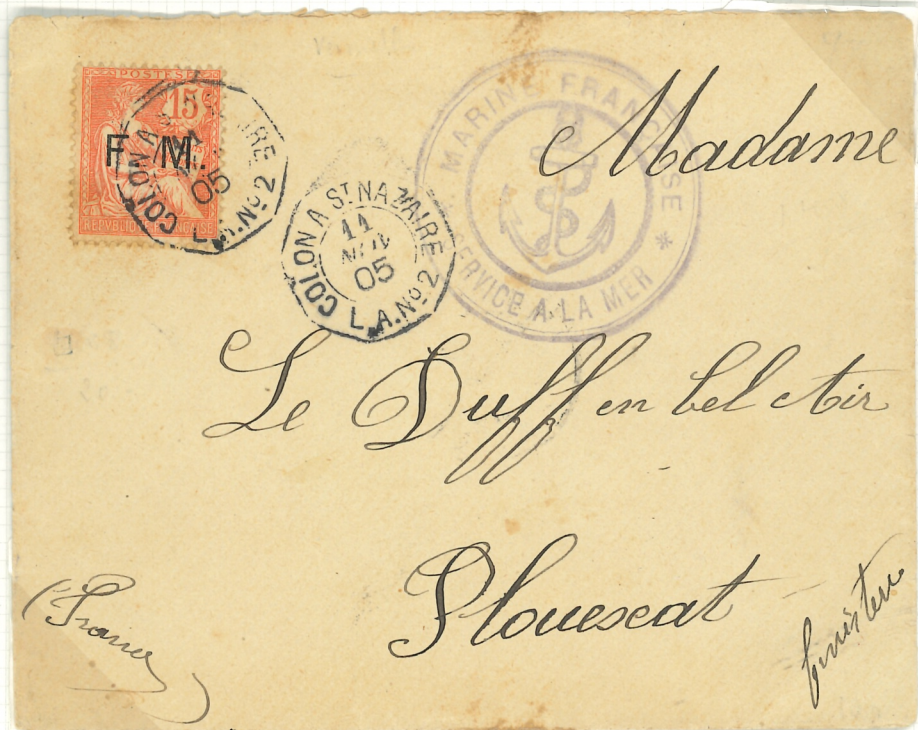 POSTES
15c
F. M.
REPVBLIQVE FRANÇAISE
COLON A ST NAZAIRE
05
L.A.No 2
COLON A ST NAZAIRE
11
NOV
05
L.A.No 2
MARINE FRANÇAISE
* SERVICE A LA MER *
Madame
Le Duff en bel Air
Plouescat
finistere
(France)